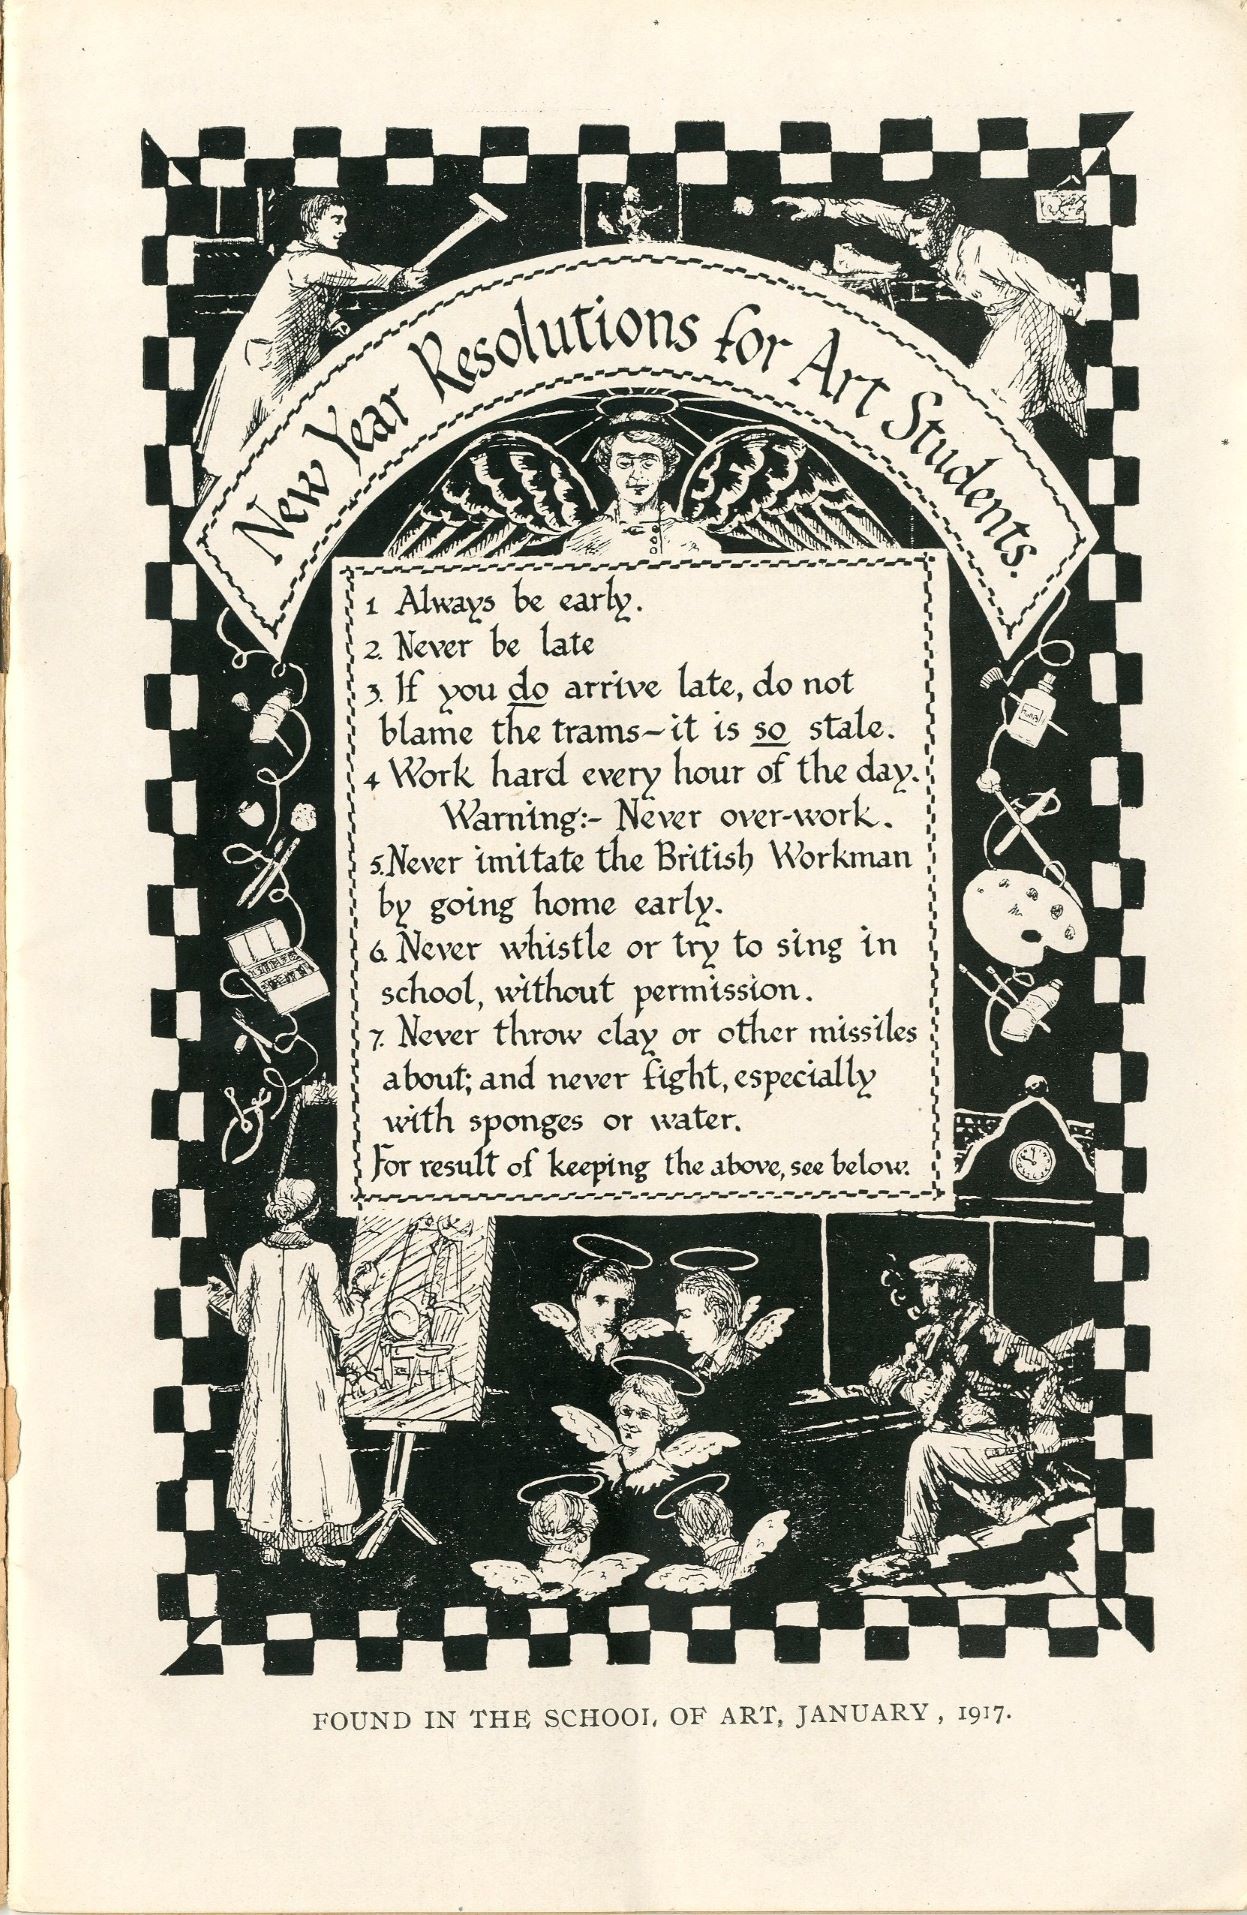 New Year Resolutions for Art Students.
1 Always be early.
2. Never be late
3. If you do arrive late, do not
blame the trams~it is so stale.
4 Work hard every hour of the day.
Warning:- Never over-work.
5. Never imitate the British Workman
by going home early.
6. Never whistle or try to sing in
school, without permission.
7. Never throw clay or other missiles
about; and never fight, especially
with sponges or water.
For result of keeping the above, see below.
FOUND IN THE SCHOOL OF ART, JANUARY, 1917.